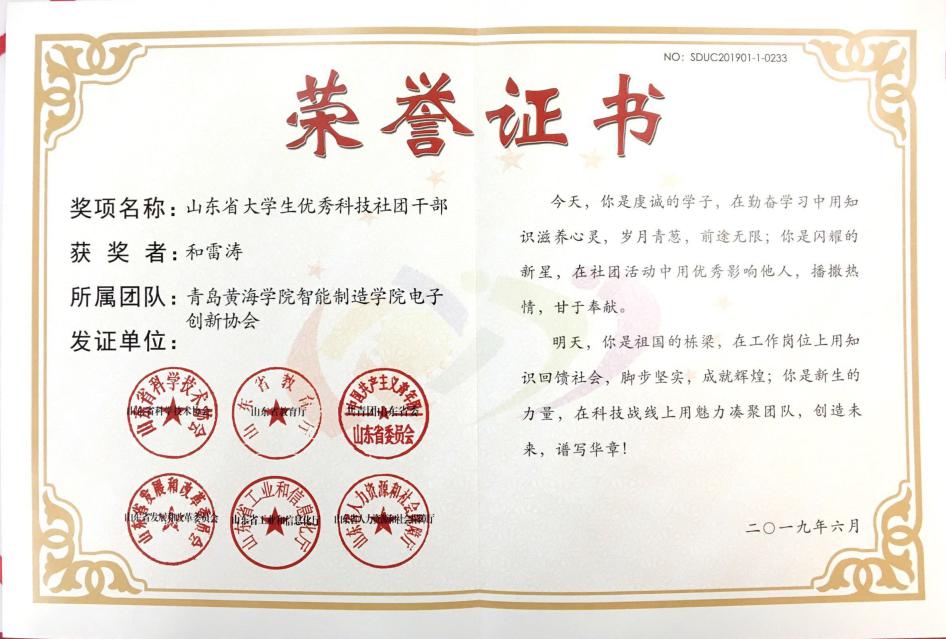 NO：SDUC201901-1-0233
荣誉证书
奖项名称：山东省大学生优秀科技社团干部
获奖者：和雷涛
所属团队：青岛黄海学院智能制造学院电子
创新协会
发证单位：
山东省科学技术协会
山东省科学技术协会
山东省教育厅
山东省教育厅
中国共产主义青年团
共青团山东省委
山东省委员会
山东省发展和改革委员会
山东省发展和改革委员会
山东省工业和信息化厅
山东省工业和信息化厅
山东省人力资源和社会保障厅
山东省人力资源和社会保障厅
今天，你是虔诚的学子，在勤奋学习中用知
识滋养心灵，岁月青葱，前途无限；你是闪耀的
新星，在社团活动中用优秀影响他人，播撒热
情，甘于奉献。
明天，你是祖国的栋梁，在工作岗位上用知
识回馈社会，脚步坚实，成就辉煌；你是新生的
力量，在科技战线上用魅力凑聚团队，创造未
来，谱写华章！
二〇一九年六月